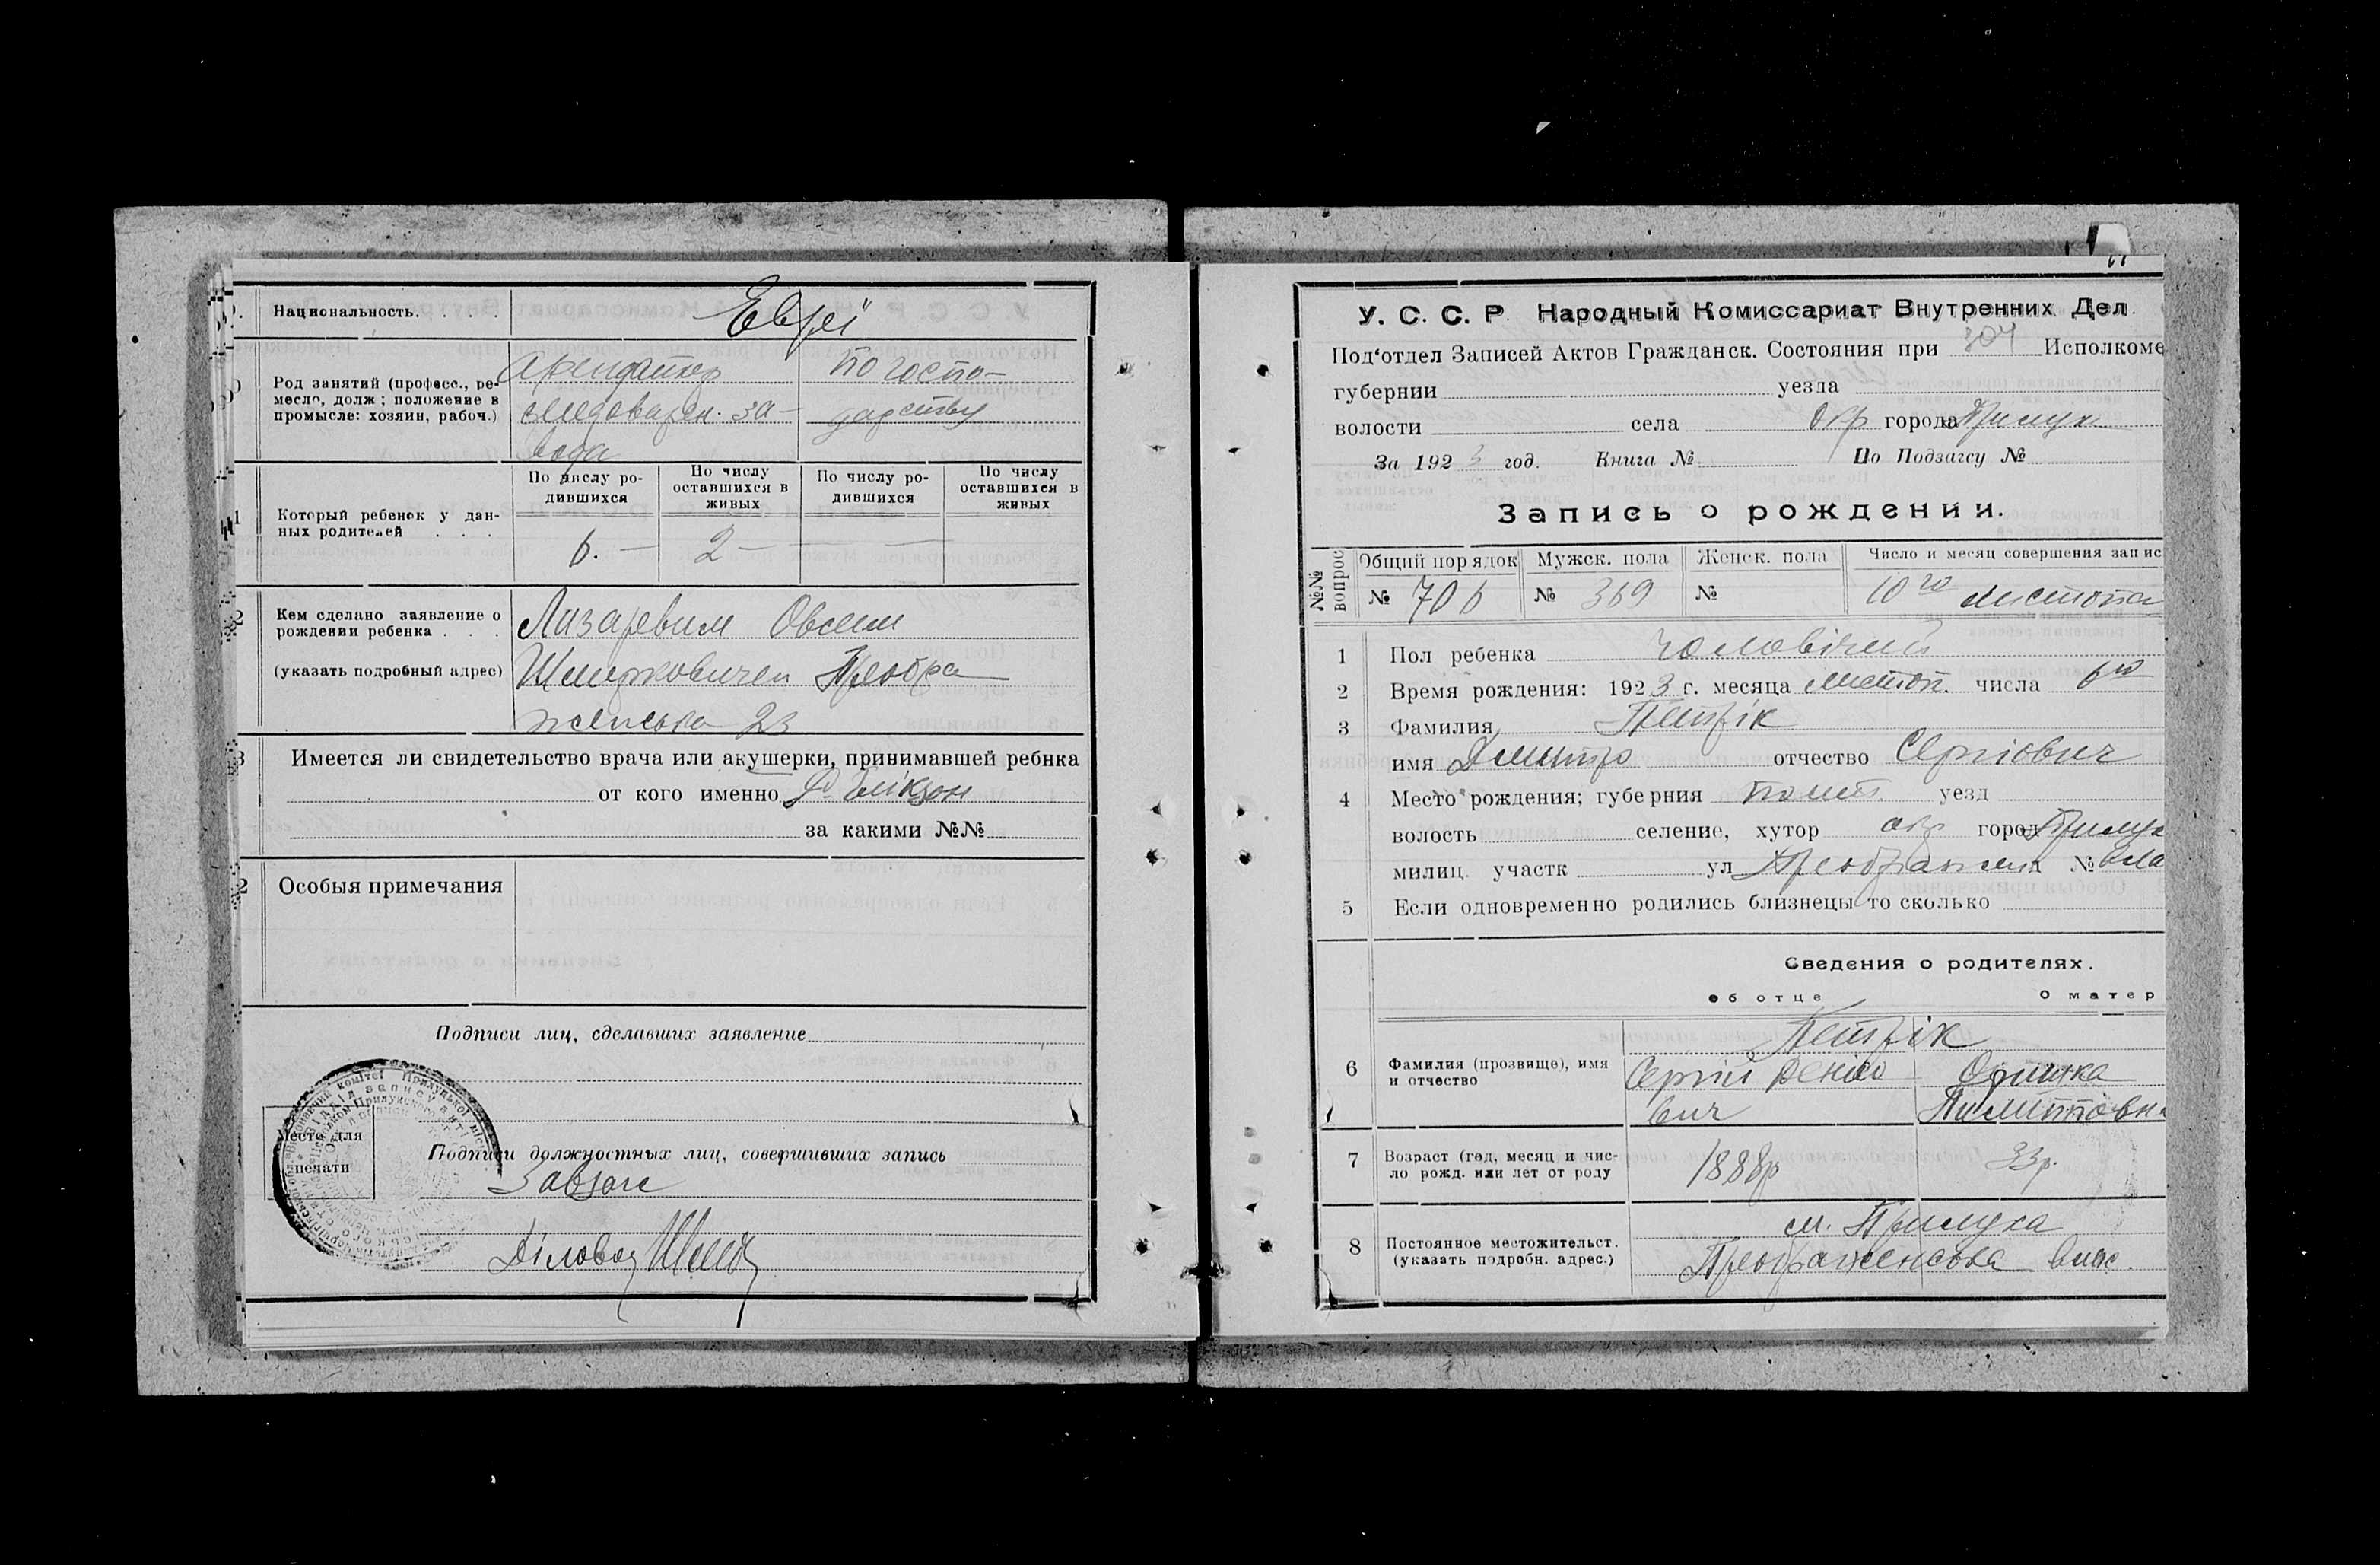 Национальность. . . . Евреї
Род занятий (професс., ре-
месло, долж; положение в
промысле: хозяин, рабоч.)
Арендатор
медоварен. за-
вода
По госпо-
дарству
Который ребенок у дан-
ных родителей . . .
По числу ро-
дившихся
По числу
оставшихся в
живых
По числу ро-
дившихся
По числу
оставшихся в
живых
6. — 2 — — —
Кем сделано заявление о
рождении ребенка . . .
(указать подробный адрес)
Лазаревим Овсеем
Шмерковичем Преобра
женська 23
Имеется ли свидетельство врача или акушерки, принимавшей ребнка
от кого именно
за какими №№
Особыя примечания
Подписи лиц, сделавших заявление
Место для
печати
Подписи должностных лиц, совершивших запись
Завзагс
Діловод
У. С. С. Р. Народный Комиссариат Внутренних Дел.
Под'отдел Записей Актов Гражданск. Состояния при 304 Исполкоме
губернии уезда
волости села окр города Прилук
За 1923 год. Книга № По Подзагсу №
Запись о рождении.
№№ вопрос
Общий порядок Мужск. пола Женск. пола Число и месяц совершения запис
№ 706 № 369 № 10го листопа
1 Пол ребенка чоловічий
2 Время рождения: 1923 г. месяца листоп. числа 6го
3 Фамилия Петрік
имя Дмитро отчество Сергіович
4 Место рождения; губерния Полт. уезд
волость селение, хутор окр город Прилук
милиц. участк ул Преображен № вла
5 Если одновременно родились близнецы то сколько
Сведения о родителях.
об отце О матер
6 Фамилия (прозвище), имя
и отчество
Петрік
Сергій Денисо
вич
Оришка
Пилиповн
7 Возраст (год, месяц и чис-
ло рожд. или лет от роду
1888р 33р.
8 Постоянное местожительст.
(указать подробн. адрес.)
м. Прилука
Преображенська влас.